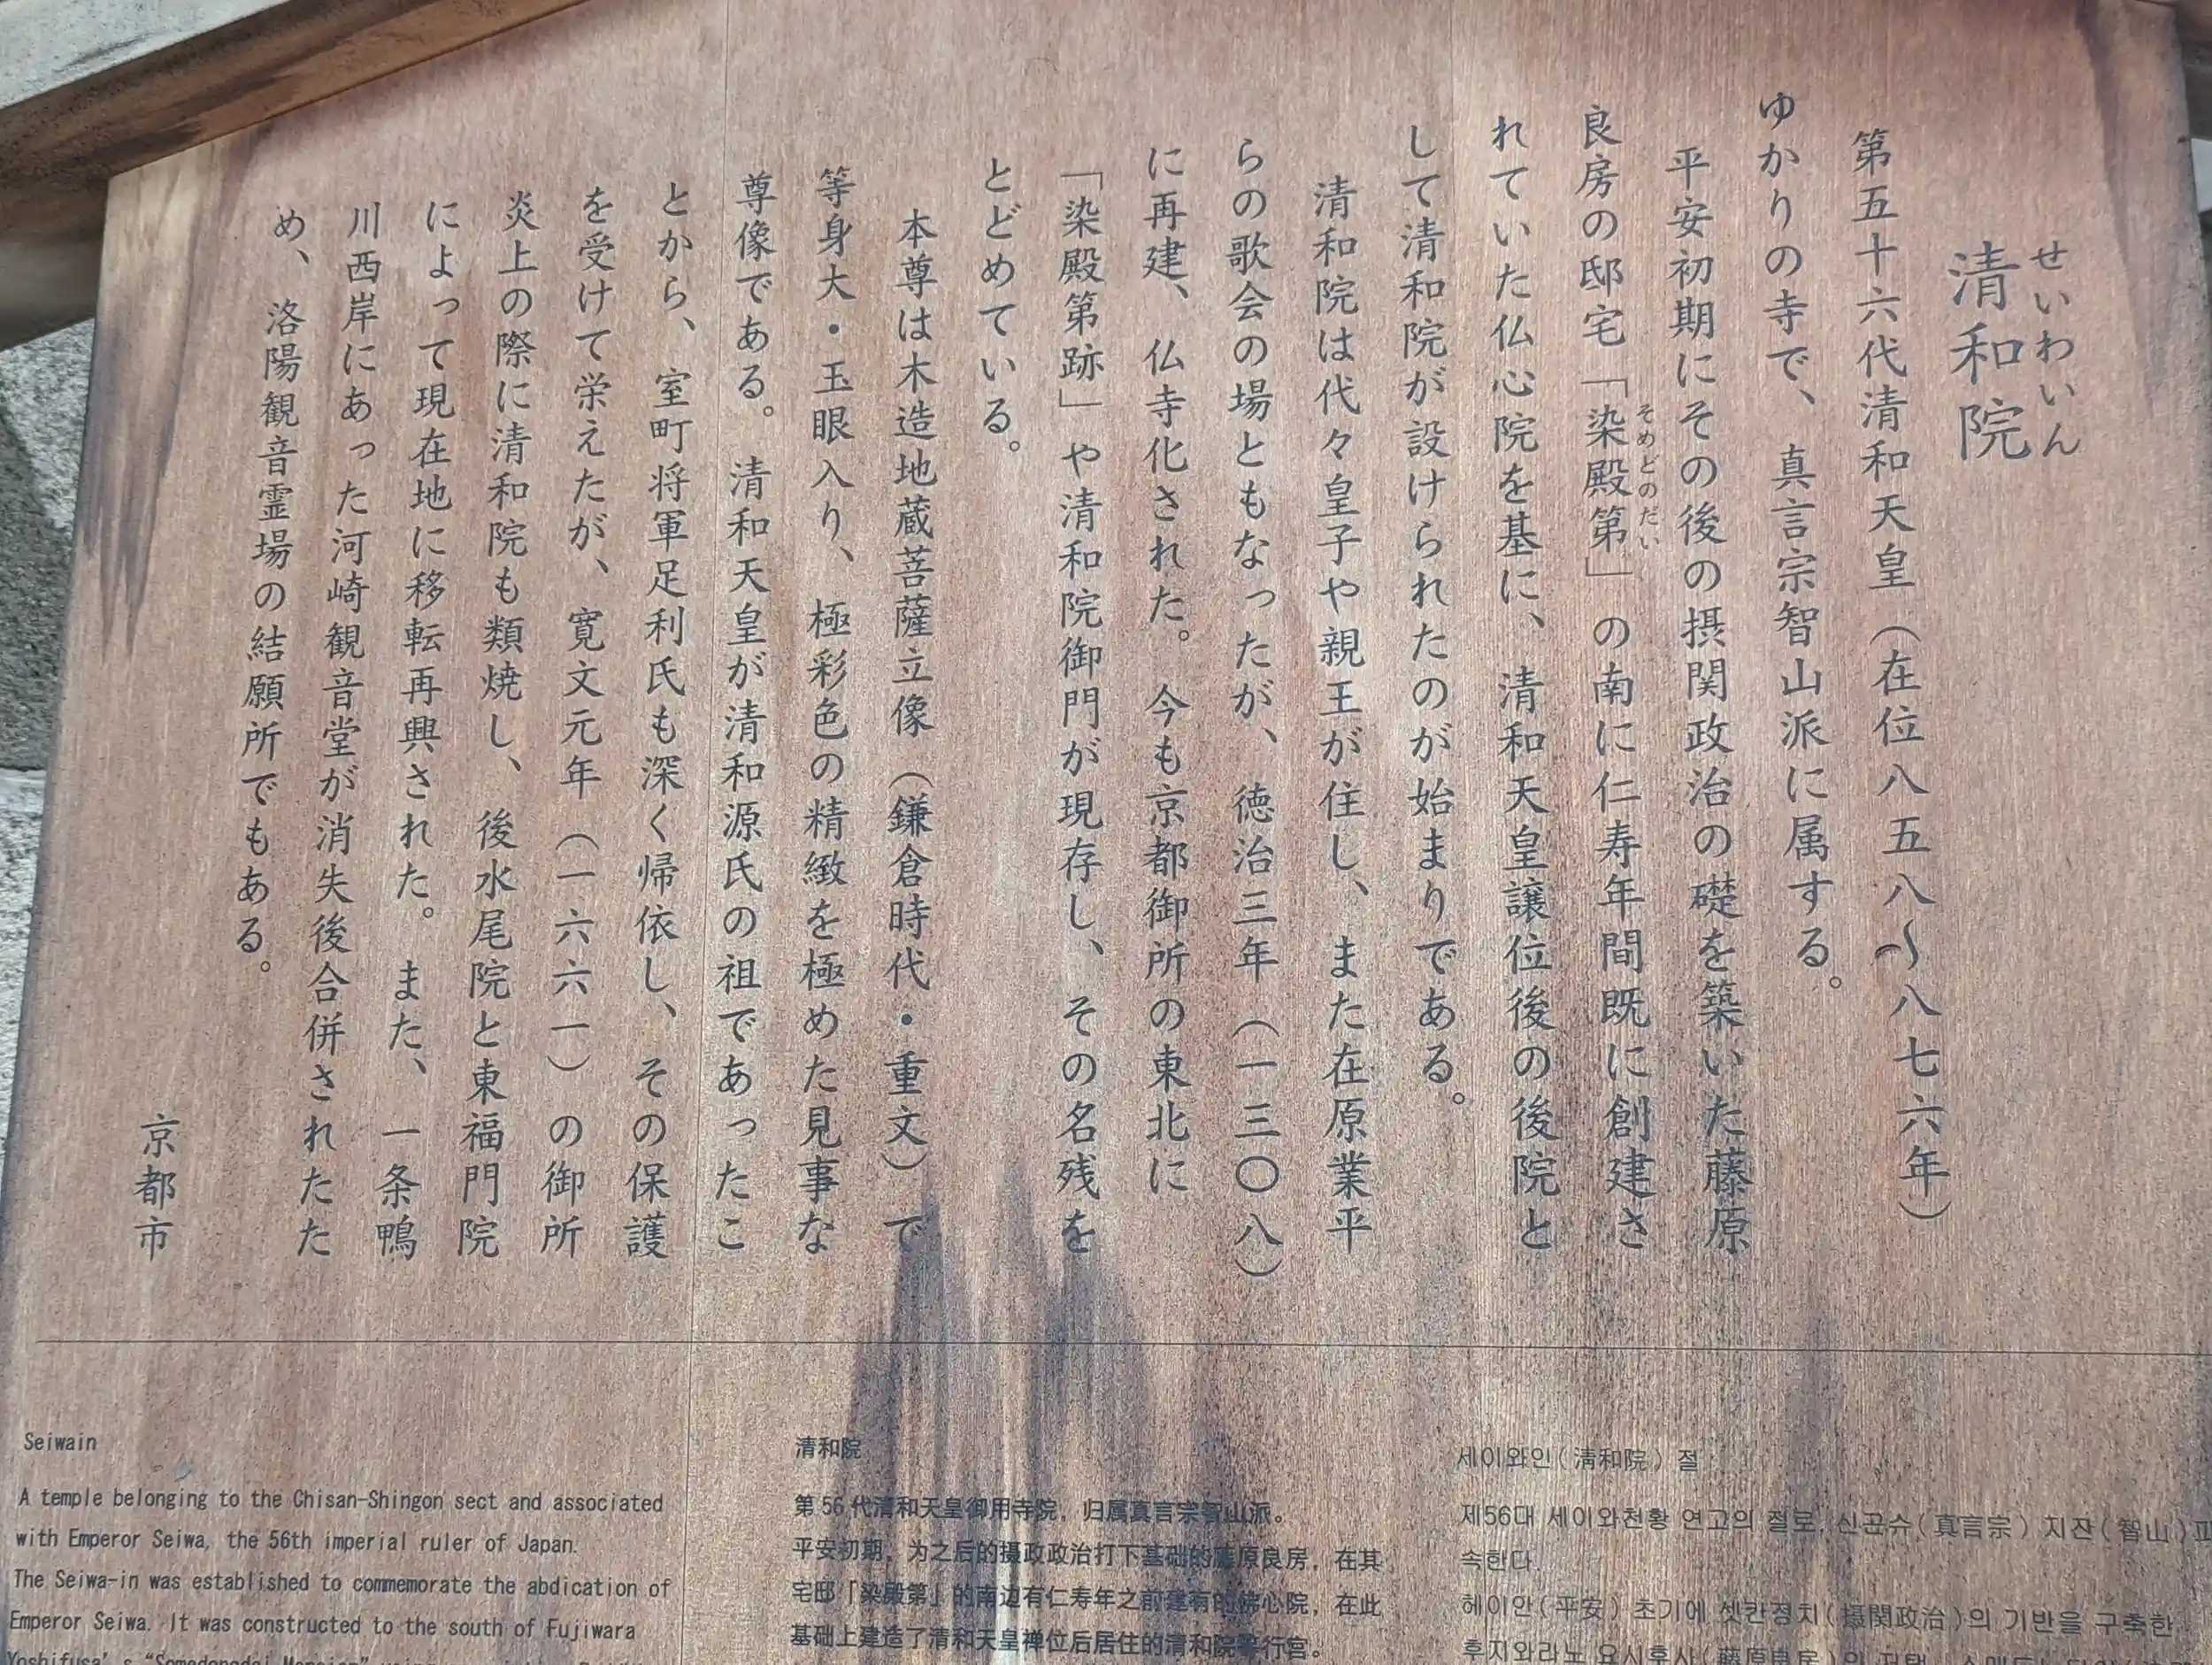 せいわいん
清和院
第五十六代清和天皇（在位八五八〜八七六年）
ゆかりの寺で、真言宗智山派に属する。
平安初期にその後の摂関政治の礎を築いた藤原
良房の邸宅「染殿第」の南に仁寿年間既に創建さ
そめどのだい
れていた仏心院を基に、清和天皇譲位後の後院と
して清和院が設けられたのが始まりである。
清和院は代々皇子や親王が住し、また在原業平
らの歌会の場ともなったが、徳治三年（一三〇八）
に再建、仏寺化された。今も京都御所の東北に
「染殿第跡」や清和院御門が現存し、その名残を
とどめている。
本尊は木造地蔵菩薩立像（鎌倉時代・重文）で
等身大・玉眼入り、極彩色の精緻を極めた見事な
尊像である。清和天皇が清和源氏の祖であったこ
とから、室町将軍足利氏も深く帰依し、その保護
を受けて栄えたが、寛文元年（一六六一）の御所
炎上の際に清和院も類焼し、後水尾院と東福門院
によって現在地に移転再興された。また、一条鴨
川西岸にあった河崎観音堂が消失後合併されたた
め、洛陽観音霊場の結願所でもある。
京都市
Seiwain
A temple belonging to the Chisan-Shingon sect and associated
with Emperor Seiwa, the 56th imperial ruler of Japan.
The Seiwa-in was established to commemorate the abdication of
Emperor Seiwa. It was constructed to the south of Fujiwara
Yoshifusa's "Somedonodai Mansion"
清和院
第56代清和天皇御用寺院，归属真言宗智山派。
平安初期，为之后的摄政政治打下基础的藤原良房，在其
宅邸「染殿第」的南边有仁寿年之前建有的佛心院，在此
基础上建造了清和天皇禅位后居住的清和院等行宫。
세이와인(清和院) 절
제56대 세이와천황 연고의 절로, 신곤슈(真言宗) 치잔(智山)파
속한다.
헤이안(平安) 초기에 셋칸정치(摂関政治)의 기반을 구축한
후지와라노 요시후사(藤原良房)의 저택